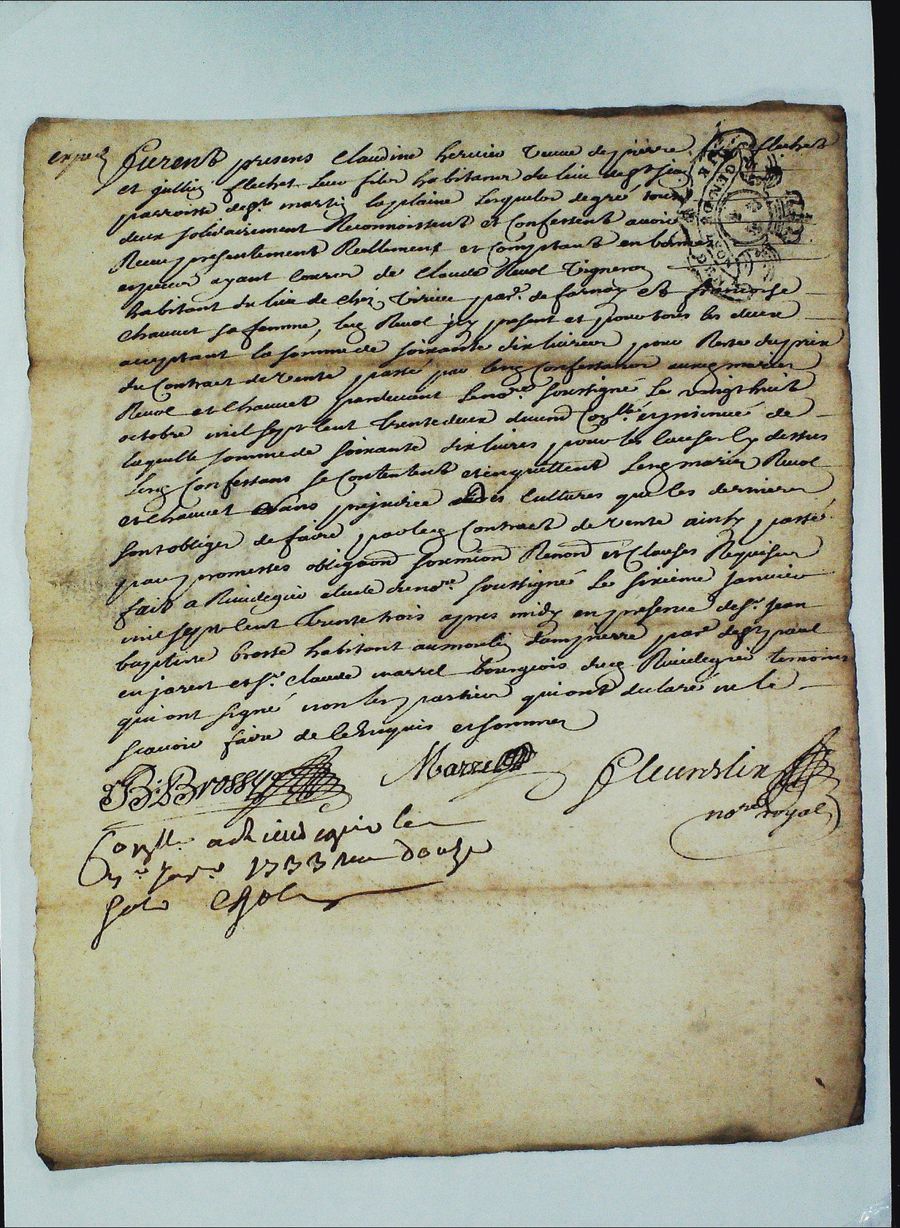 furent presens Claudine hervier veuve de pierre flechet
et jullien flechet leur filz habitans du lieu de
parroisse de St martin la plaine lesquelz de gré tous
deux solidairement Reconnoissent et Confessent avoir
Receu presentement Reellement et Comptant en bonnes
especes ayant Cours de Claude Revol Vigneron
habitant du lieu de Chez par. de farnay et françoise
Chauvet sa femme, led Revol icy present et pour tous les deux
acceptant la somme de soixante dix livres pour Reste du prix
du Contract de vente passé par lesd Confessans ausd mariez
Revol et Chauvet pardevant le no.re soussigné Le vingt huit
octobre mil sept cent trente deux duemt Con.llé et insinué de
laquelle somme de soixante dix livres pour les causes cy dessus
lesd Confessans se Contentent et en quittent lesd mariez Revol
et Chauvet sans prejudice des Cultures que les derniers
sont obligez de faire par led Contract de vente ainsy passé
par promesses obligaons soumission Renonc et Clauses Requises
fait a Rivedegier etude du no.re soussigné Le sixieme janvier
mil sept cent trente trois apres midy en presence de Sr. Jean
baptiste brossy habitant au moulin dampierre par. de St paul
en jarest et Sr. Claude marrel bourgeois dud Rivedegier temoins
qui ont signé non les parties qui ont declaré ne le
scavoir faire de ce Enquis et sommez
B. Brossy Marrel fleurdelix
no.re royal
Con.llé a Rivedegier le
janv. 1733 Receu douze
sols